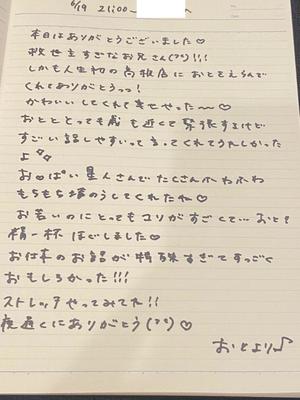 6/19 21:00～
本日はありがとうございました♡
救世主すぎたお兄さん(??)!!!
しかも人生初の高級店におとをえらんで
くれてありがとうっ!
かわいいしてくれて幸せやった〜♡
おととっても歳も近くて緊張するけど
すごい話しやすいって言ってくれてうれしかった
よ
お♡ぱい星人さんでたくさんふわふわ
もちもち堪のうしてくれたね♡
お若いのにとってもコリがすごくて…おと?
精一杯ほぐしました♡
お仕事のお話が特殊すぎてすっごく
おもしろかった!!!
ストレッチやってみてね!!
夜遅くにありがとう(??)♡
おとより♪